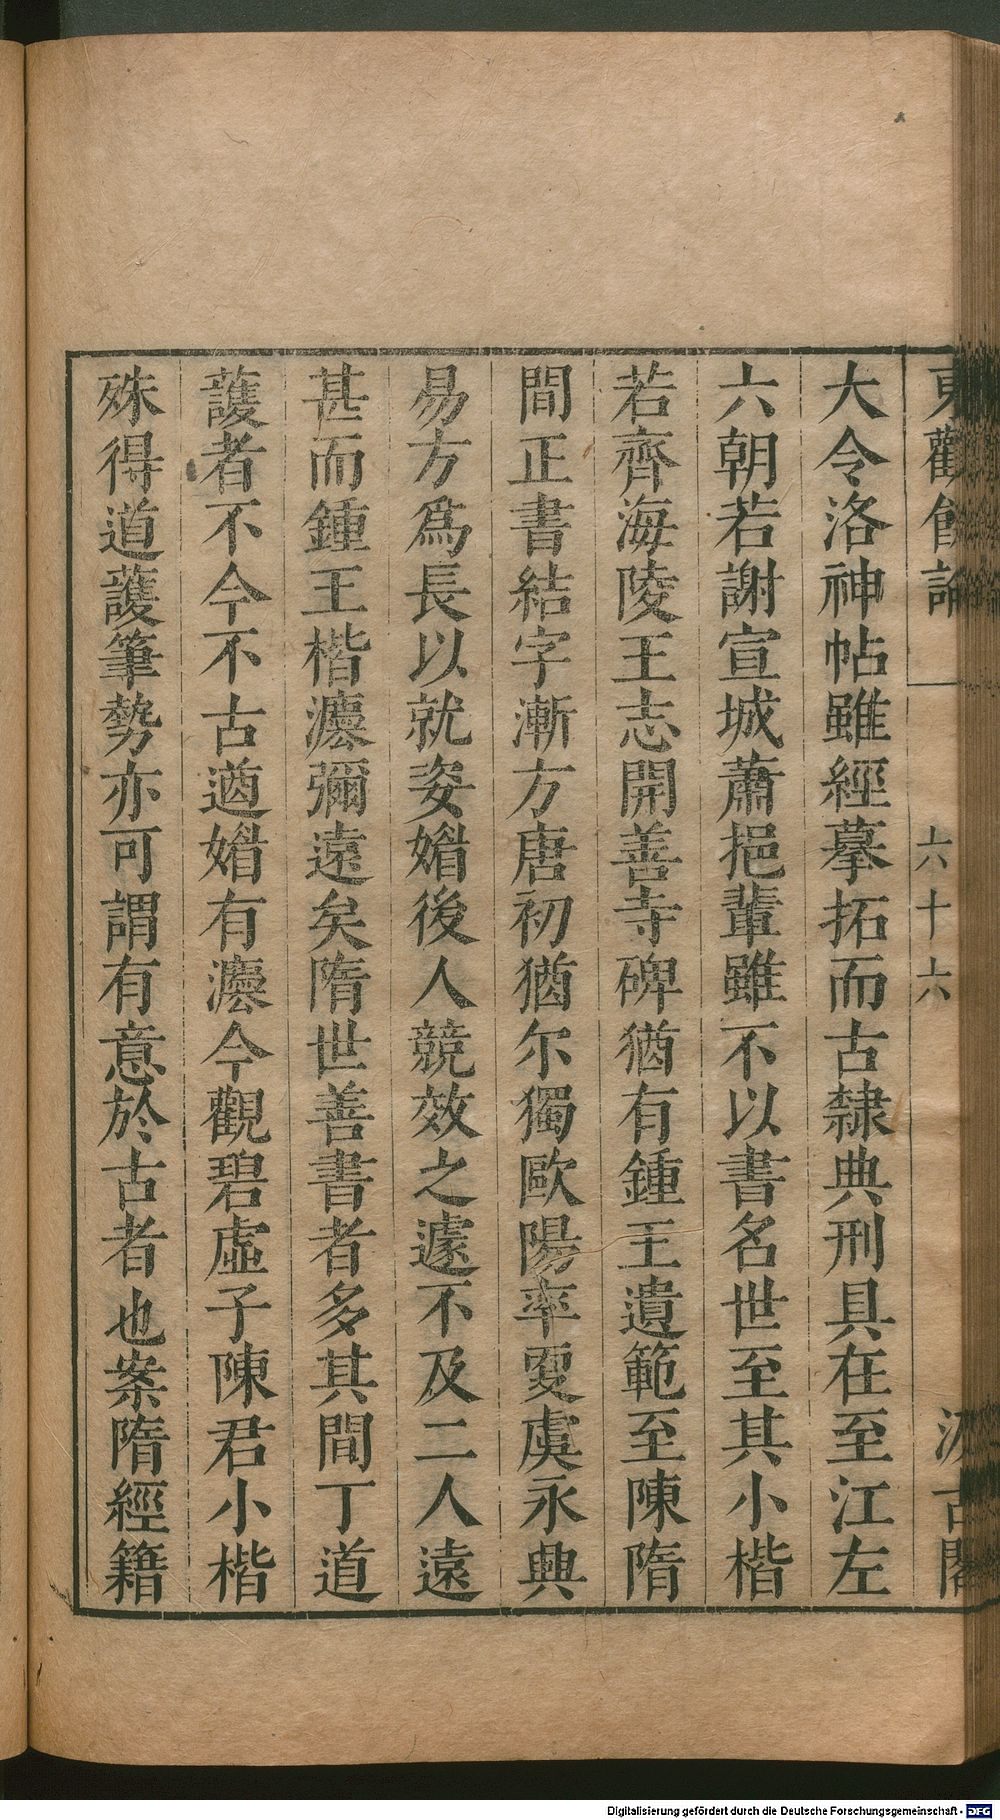 東觀餘論
六十六
汲古閣
大令洛神帖雖經摹拓而古隸典刑具在至江左
六朝若謝宣城蕭挹輩雖不以書名世至其小楷
若齊海陵王志開善寺碑猶有鍾王遺範至陳隋
間正書結字漸方唐初猶尔獨歐陽率更虞永興
易方爲長以就姿媚後人競效之遽不及二人遠
甚而鍾王楷灋彌遠矣隋世善書者多其間丁道
護者不今不古遒媚有灋今觀碧虛子陳君小楷
殊得道護筆勢亦可謂有意於古者也案隋經籍
Digitalisierung gefördert durch die Deutsche Forschungsgemeinschaft - DFG